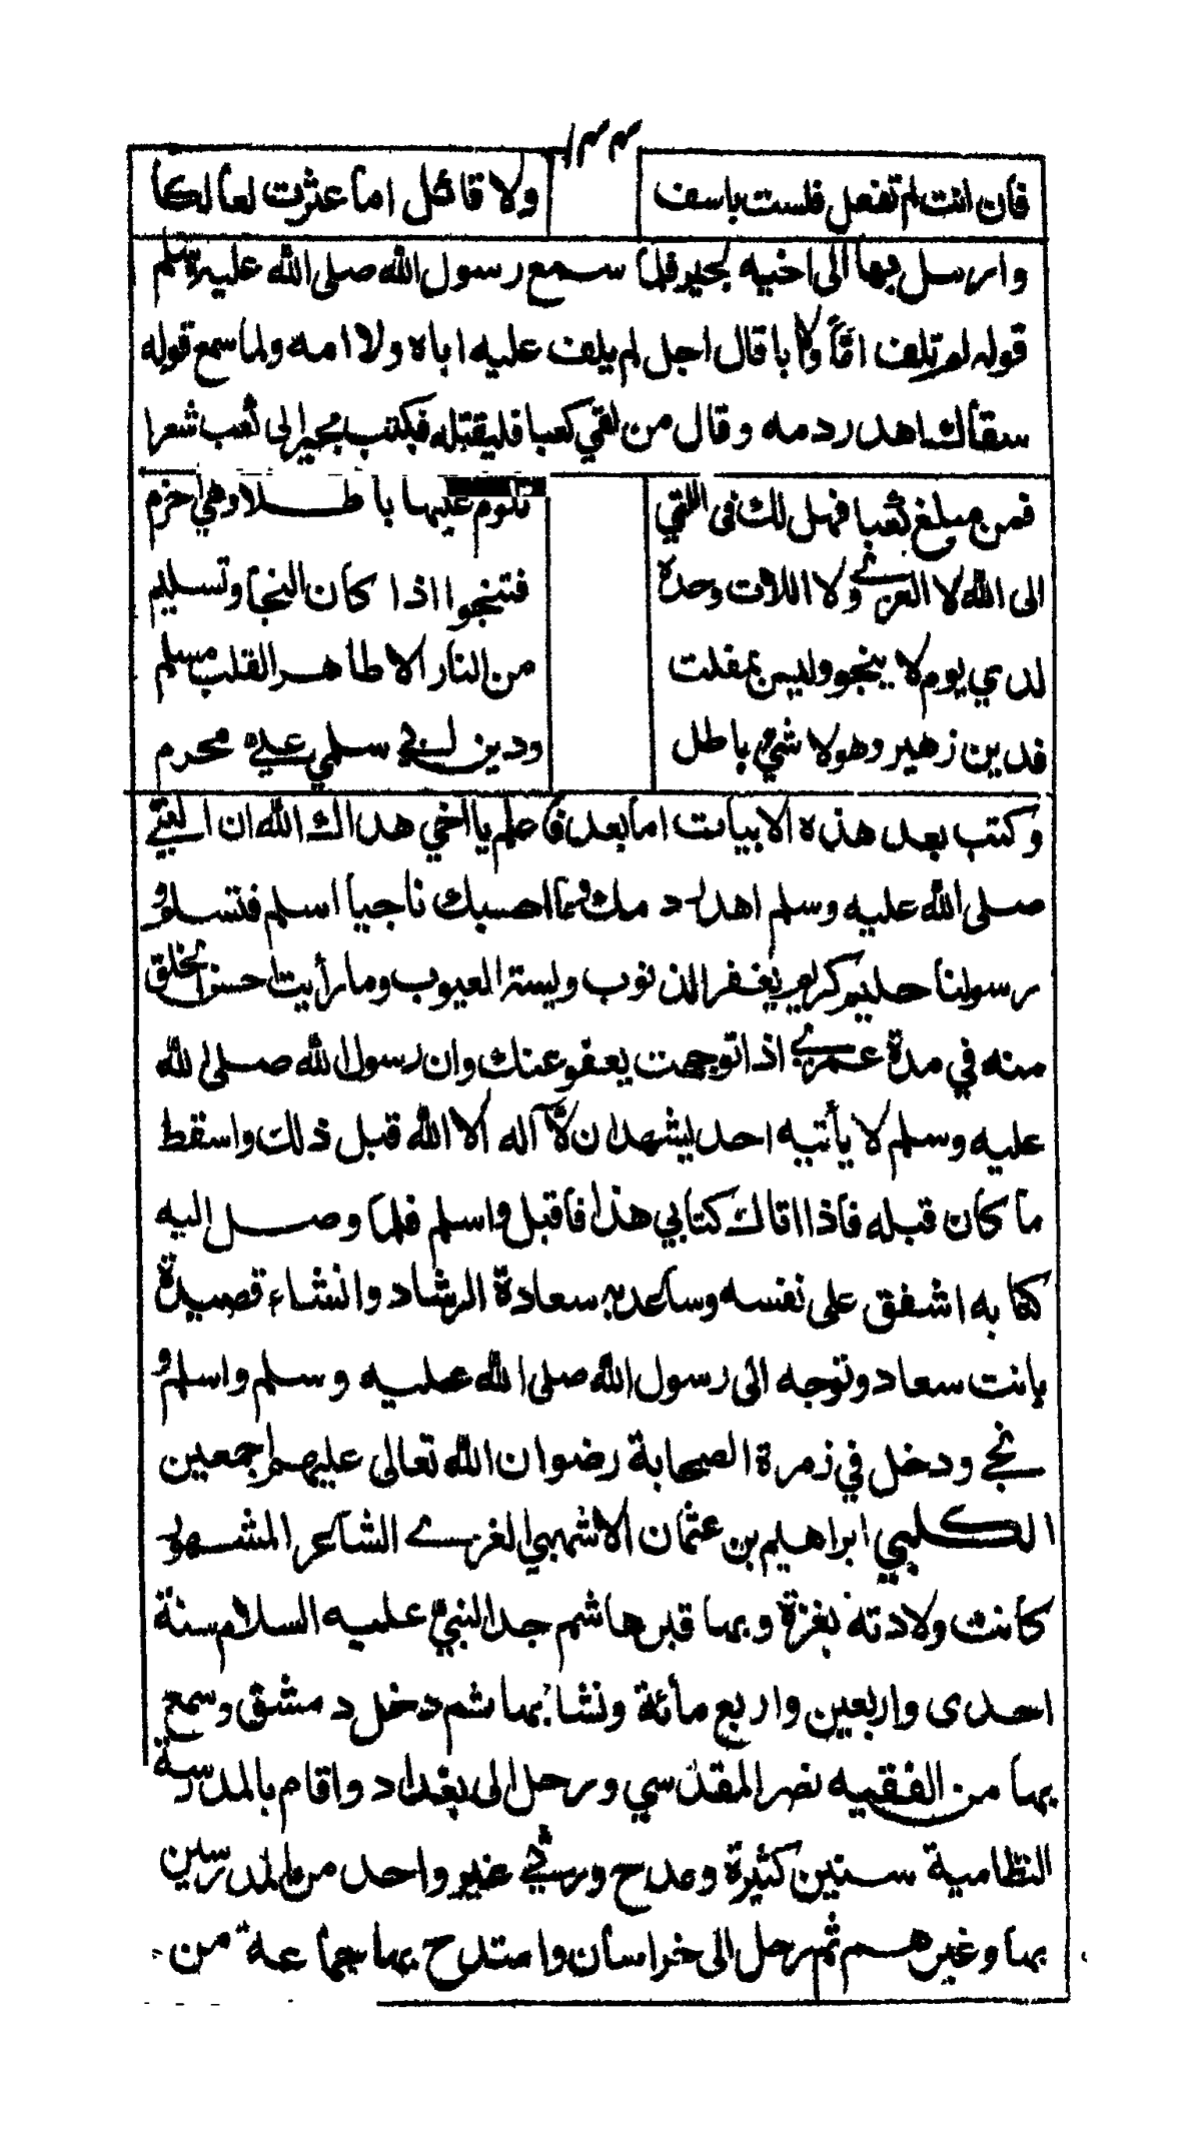 ١٣٣
فان انت لم تفعل فلست باسف ولا قائل اما عثرت لعا لكا
وارسل بها الى اخيه بجير فلما سمع رسول الله صلى الله عليه وسلم
قوله لم تلف اما ولا ابا قال اجل لم يلف عليه اباه ولا امه ولما سمع قوله
سقاك اهدر دمه وقال من لقي كعبا فليقتله فكتب بجير الى كعب شعرا
فمن مبلغ كعبا فهل لك فى اللتي تلوم عليها باطلا وهي احزم
الى الله لا العزى ولا اللات وحده فتنجوا اذا كان النجا وتسليم
لدي يوم لا ينجو وليس بمفلت من النار الا طاهر القلب مسلم
فدين زهير وهو لا شئ باطل ودين ابي سلمي علي محرم
وكتب بعد هذه الابيات اما بعد فاعلم يا اخي هداك الله ان النبي
صلى الله عليه وسلم اهدر دمك فما احسبك ناجيا اسلم فتسلم و
رسولنا حليم كريم يغفر الذنوب ويستر العيوب وما رأيت احسن الخلق
منه في مدة عمري اذا توجهت يعفو عنك وان رسول الله صلى الله
عليه وسلم لا يأتيه احد يشهد ان لا آله الا الله قبل ذلك واسقط
ما كان قبله فاذا اتاك كتابي هذا فاقبل واسلم فلما وصل اليه
كتابه اشفق على نفسه وساعدته سعادة الرشاد وانشاء قصيدة
بانت سعاد وتوجه الى رسول الله صلى الله عليه وسلم واسلم و
نجي ودخل في زمرة الصحابة رضوان الله تعالى عليهم اجمعين
الكلبي ابراهيم بن عثمان الاشهبي الغزي الشاعر المشهور
كانت ولادته بغزة وبها قبر هاشم جد النبي عليه السلام سنة
احدى واربعين واربع مائة ونشا بها ثم دخل دمشق وسمع
بها من الفقيه نصر المقدسي ورحل الى بغداد واقام بالمدرسة
النظامية سنين كثيرة ومدح ورثي غير واحد من المدرسين
بها وغيرهم ثم رحل الى خراسان وامتدح بها جماعة من